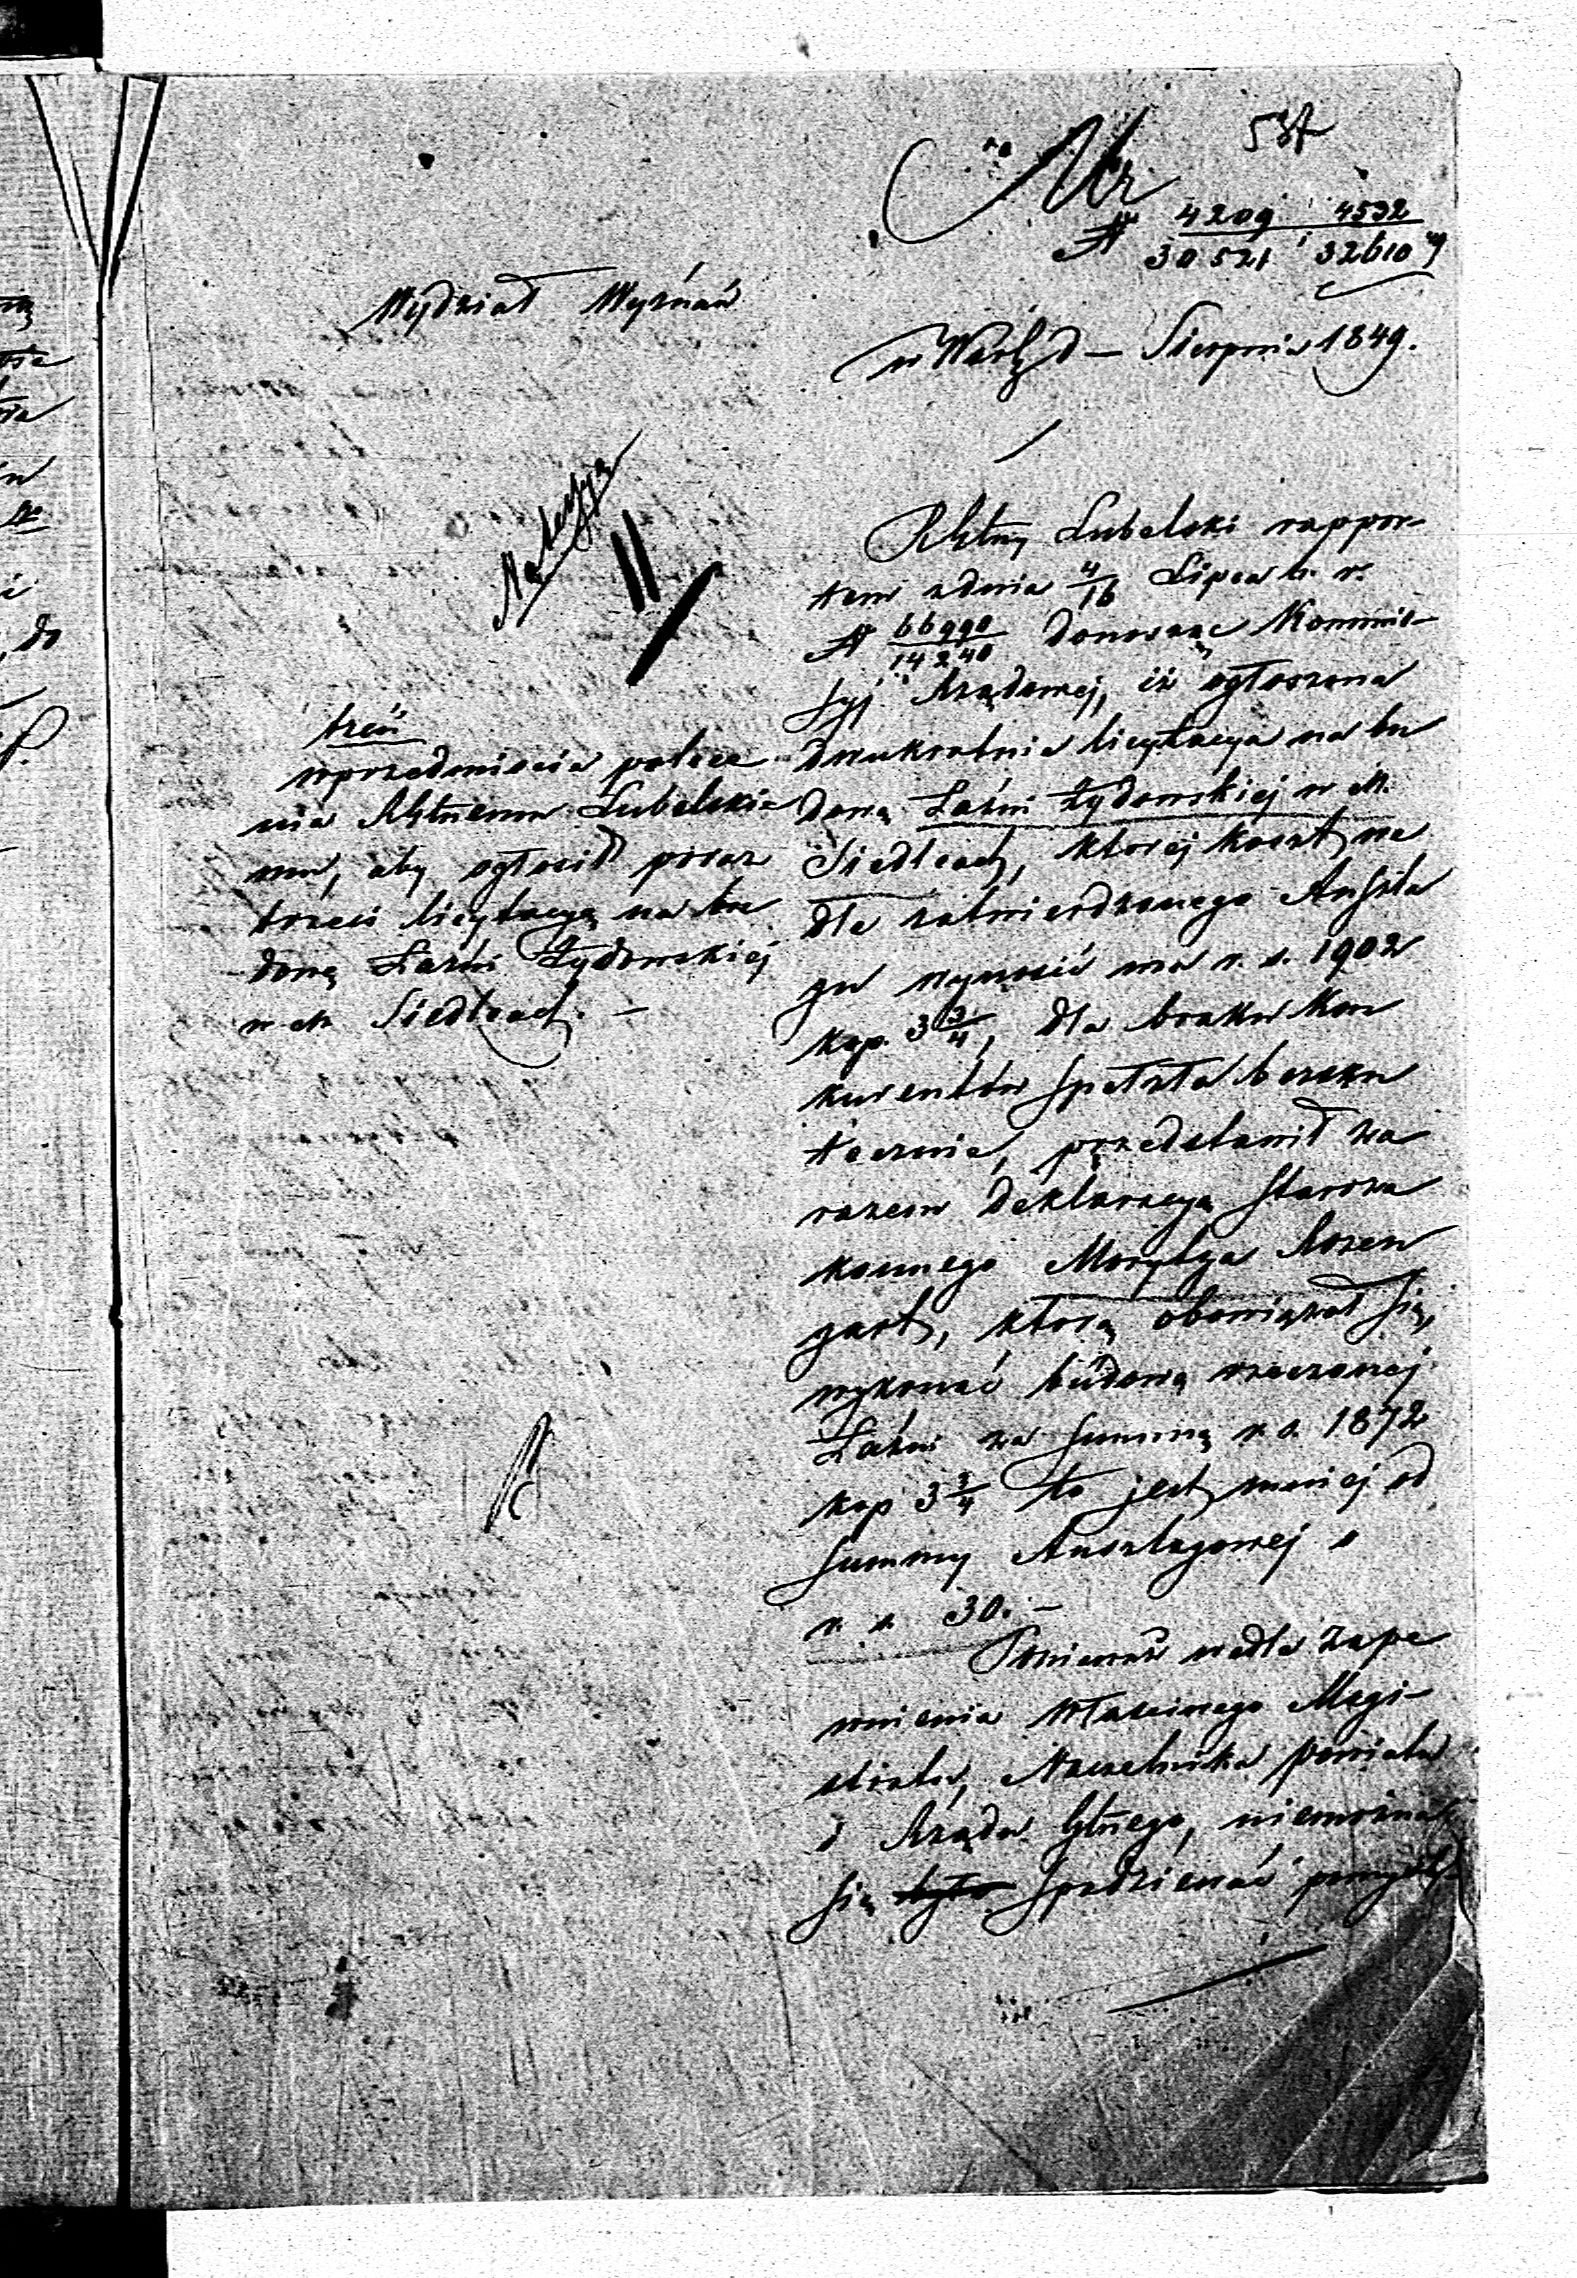 537
Nr
N 4209 / 30521, 4532 / 32610
Wydział Wyznań
w Warsz d — Sierpnia 1849.
treść
uprzedniościa polece
nia RGłnemu Lubelskie
mu, aby ogłosił poraz
trzeci licytacyą na bu
dową Łaźni Żydowskiej
w m Siedlcach. —
RGłny Lubelski rappor-
tem z dnia 4/16 Lipca b. r.
N 66990/14240 donosząc Kommis-
syj Rządowej, iż ogłoszona
dwukrotnie licytacya na bu
dową Łaźni Żydowskiej w M.
Siedlcach, ktorej koszt we
dle zatwierdzonego Anszla
gu wynosić ma r. s. 1902
kop. 3 3/4, dla braku kon
kurentów spełzła bezsku
tecznie, przedstawił za
razem deklaracyą Staroza
konnego Morytza Rozen
gart, którą obowiązał się,
wykonać budową rzeczonej
Łaźni za summą r. s. 1872
kop 3 3/4 to jest mniej od
summy Anszlagowej o
r. s. 30. —
Ponieważ wedle zape
wnienia właściwego Magi-
stratu, Naczelnika powiatu
i Rządu Głnego, niemożna
się było spodziewać